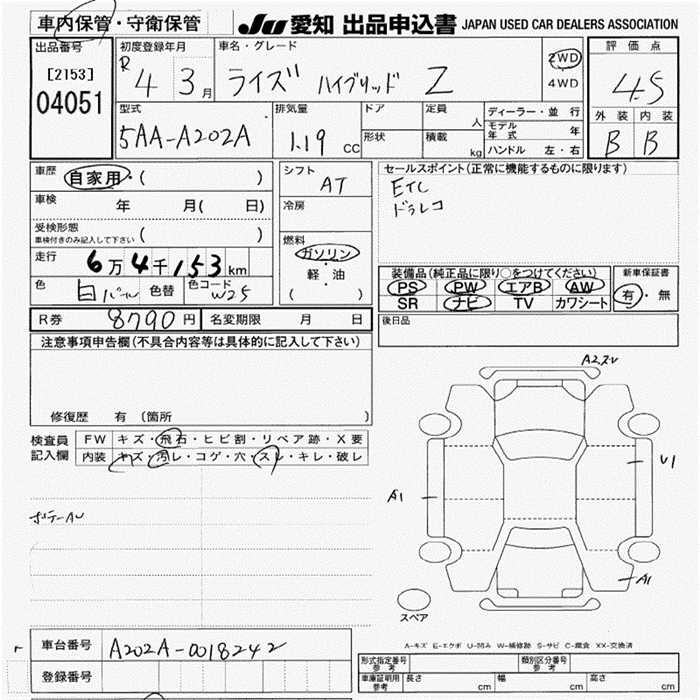 車内保管・守衛保管 JU愛知 出品申込書 JAPAN USED CAR DEALERS ASSOCIATION
出品番号 初度登録年月 車名・グレード 評価点
[2153] R 4 3月 ライズ ハイブリッド Z 2WD
4WD 4.5
04051
型式 排気量 ドア 定員 ディーラー・並行 外装 内装
人 モデル年式 年
5AA-A202A 1.19 CC 形状 積載 kg ハンドル 左・右 B B
車歴 自家用・( ) シフト AT セールスポイント(正常に機能するものに限ります)
ETC
ドラレコ
車検 年 月( 日) 冷房
受検形態
車検付きのみ記入して下さい ( )
燃料
走行 6万4千153km ガソリン・
軽・油
( )
装備品(純正品に限り○をつけてください) 新車保証書
PS PW エアB AW 有・無
SR ナビ TV カワシート
色 白パール 色替 色コード W25
R券 8790円 名変期限 月 日 後日品
注意事項申告欄(不具合内容等は具体的に記入して下さい)
修復歴 有 (箇所
検査員 FW キズ・飛石・ヒビ割・リペア跡・X要
記入欄 内装 キズ・汚レ・コゲ・穴・スレ・キレ・破レ
ボデーAU
A2.ズレ
A1
U1
A1
スペア
A-キズ E-エクボ U-凹み W-補修跡 S-サビ C-腐食 XX-交換済
車台番号 A202A-0018242
登録番号
形式指定番号 参考 類別区分番号 参考
車庫証明用 参考 長さ cm 幅 cm 高さ cm